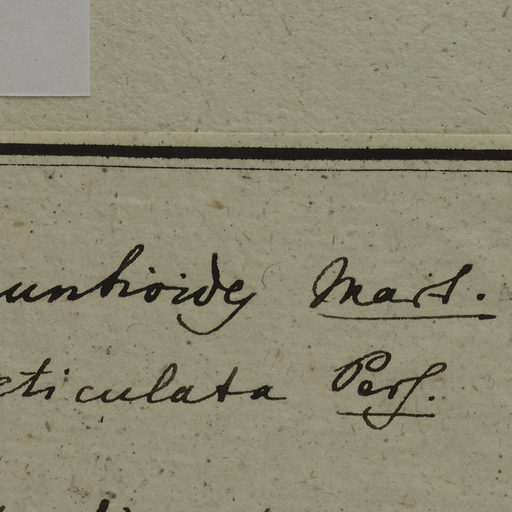 unhioides Mart.
eticulata Pers.